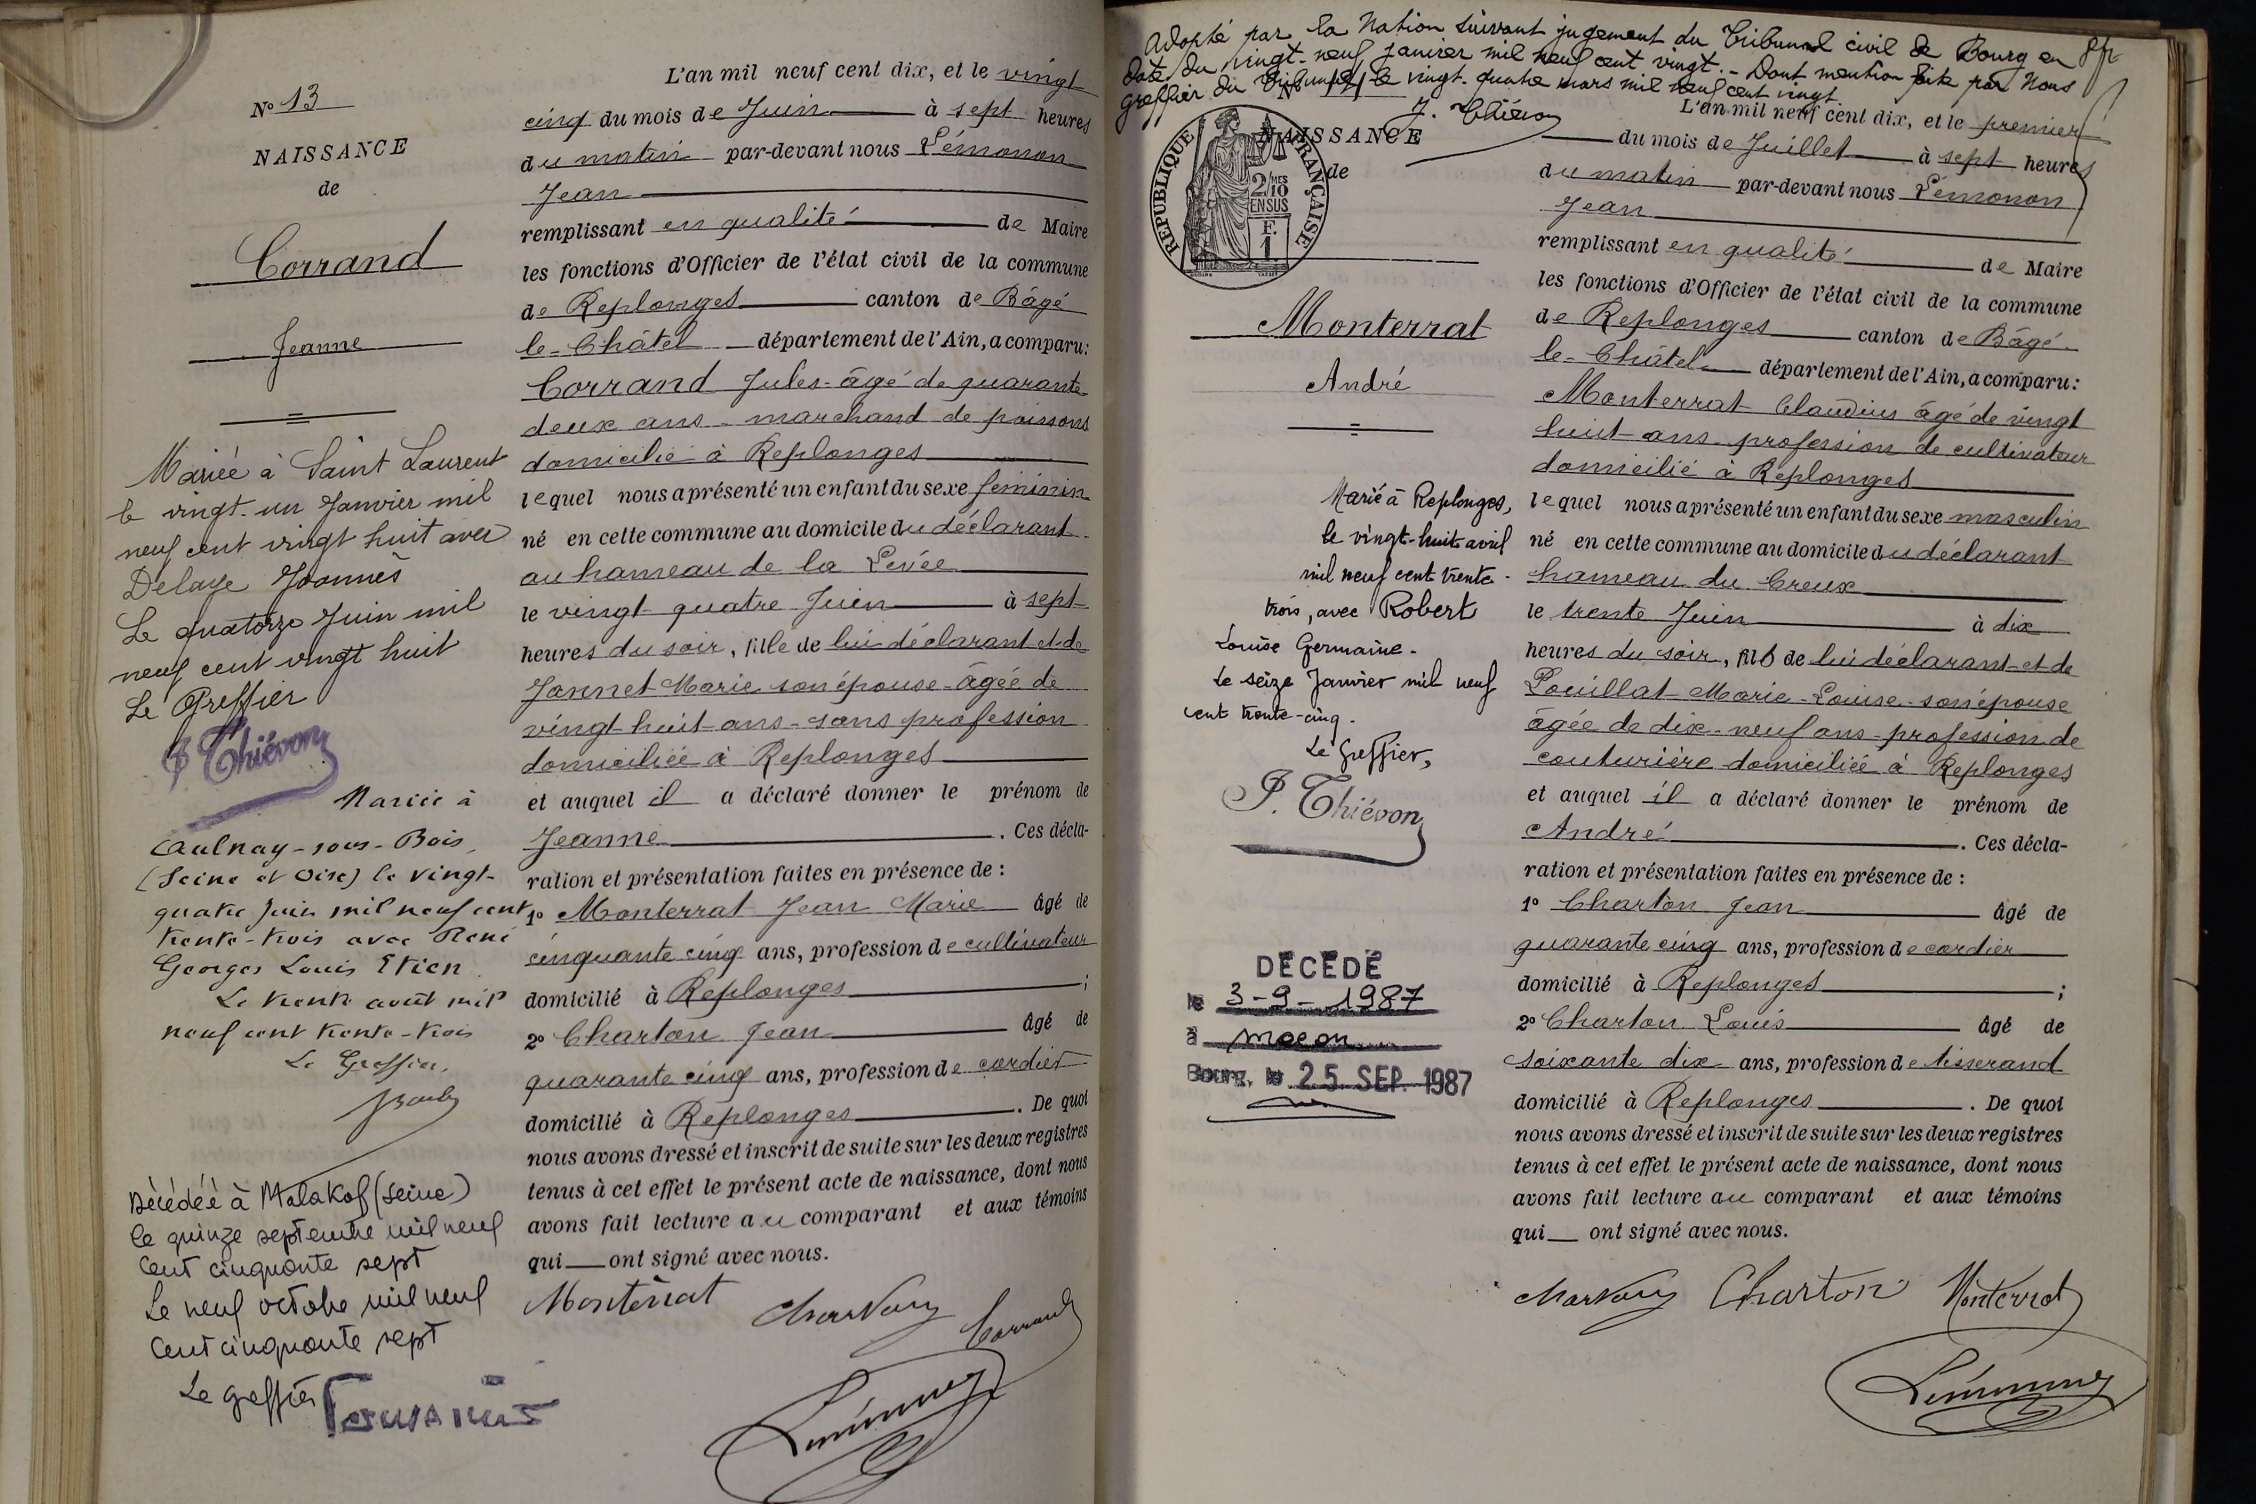 N° 13
NAISSANCE
de
Corrand
Jeanne
Mariée à Saint Laurent
le vingt-un Janvier mil
neuf cent vingt huit avec
Delaye Joannès
Le quatorze Juin mil
neuf cent vingt huit
Le Greffier
P Thiévon
Mariée à
Aulnay-sous-Bois
(Seine et Oise) le vingt-
quatre juin mil neuf cent
trente-trois avec René
Georges Louis Etien
Le trente août mil
neuf cent trente-trois
Le Greffier,
Décédée à Malakof (Seine)
le quinze septembre mil neuf
cent cinquante sept
Le neuf octobre mil neuf
cent cinquante sept
Le greffier
L'an mil neuf cent dix, et le vingt
cinq du mois de Juin à sept heures
du matin par-devant nous Lémonon
Jean
remplissant en qualité de Maire
les fonctions d'Officier de l'état civil de la commune
de Replonges canton de Bâgé
le-Châtel département de l'Ain, a comparu:
Corrand Jules âgé de quarante
deux ans marchand de poissons
domicilié à Replonges
lequel nous a présenté un enfant du sexe féminin
né en cette commune au domicile du déclarant
au hameau de la Levée
le vingt quatre Juin à sept
heures du soir, fille de lui déclarant et de
Jannet Marie son épouse âgée de
vingt huit ans sans profession
domiciliée à Replonges
et auquel il a déclaré donner le prénom de
Jeanne . Ces décla-
ration et présentation faites en présence de :
1° Monterrat Jean Marie âgé de
cinquante cinq ans, profession de cultivateur
domicilié à Replonges ;
2° Charton Jean âgé de
quarante cinq ans, profession de cordier
domicilié à Replonges . De quoi
nous avons dressé et inscrit de suite sur les deux registres
tenus à cet effet le présent acte de naissance, dont nous
avons fait lecture au comparant et aux témoins
qui ont signé avec nous.
Monterrat Corrand
Adopté par la Nation suivant jugement du Tribunal civil de Bourg en
date du vingt-neuf janvier mil neuf cent vingt. - Dont mention faite par Nous
greffier du Tribunal le vingt-quatre mars mil neuf cent vingt
J. Thiévon
N° 14
NAISSANCE
de
REPUBLIQUE FRANÇAISE
2/10 MES
EN SUS
F.
1
Monterrat
André
Marié à Replonges,
le vingt-huit avril
mil neuf cent trente-
trois, avec Robert
Louise Germaine.
Le seize Janvier mil neuf
cent trente-cinq.
Le Greffier,
P. Thiévon
DÉCÉDÉ
le 3-9-1987
à macon
Bourg, le 25 SEP. 1987
L'an mil neuf cent dix, et le premier
du mois de Juillet à sept heures
du matin par-devant nous Lémonon
Jean
remplissant en qualité de Maire
les fonctions d'Officier de l'état civil de la commune
de Replonges canton de Bâgé
le-Châtel département de l'Ain, a comparu:
Monterrat Claudius âgé de vingt
huit ans profession de cultivateur
domicilié à Replonges
lequel nous a présenté un enfant du sexe masculin
né en cette commune au domicile du déclarant
hameau du Creux
le trente Juin à dix
heures du soir, fils de lui déclarant et de
Pouillat Marie-Louise son épouse
âgée de dix-neuf ans profession de
couturière domiciliée à Replonges
et auquel il a déclaré donner le prénom de
André . Ces décla-
ration et présentation faites en présence de :
1° Charton Jean âgé de
quarante cinq ans, profession de cordier
domicilié à Replonges ;
2° Charton Louis âgé de
soixante dix ans, profession de tisserand
domicilié à Replonges . De quoi
nous avons dressé et inscrit de suite sur les deux registres
tenus à cet effet le présent acte de naissance, dont nous
avons fait lecture au comparant et aux témoins
qui ont signé avec nous.
Charton Monterrat